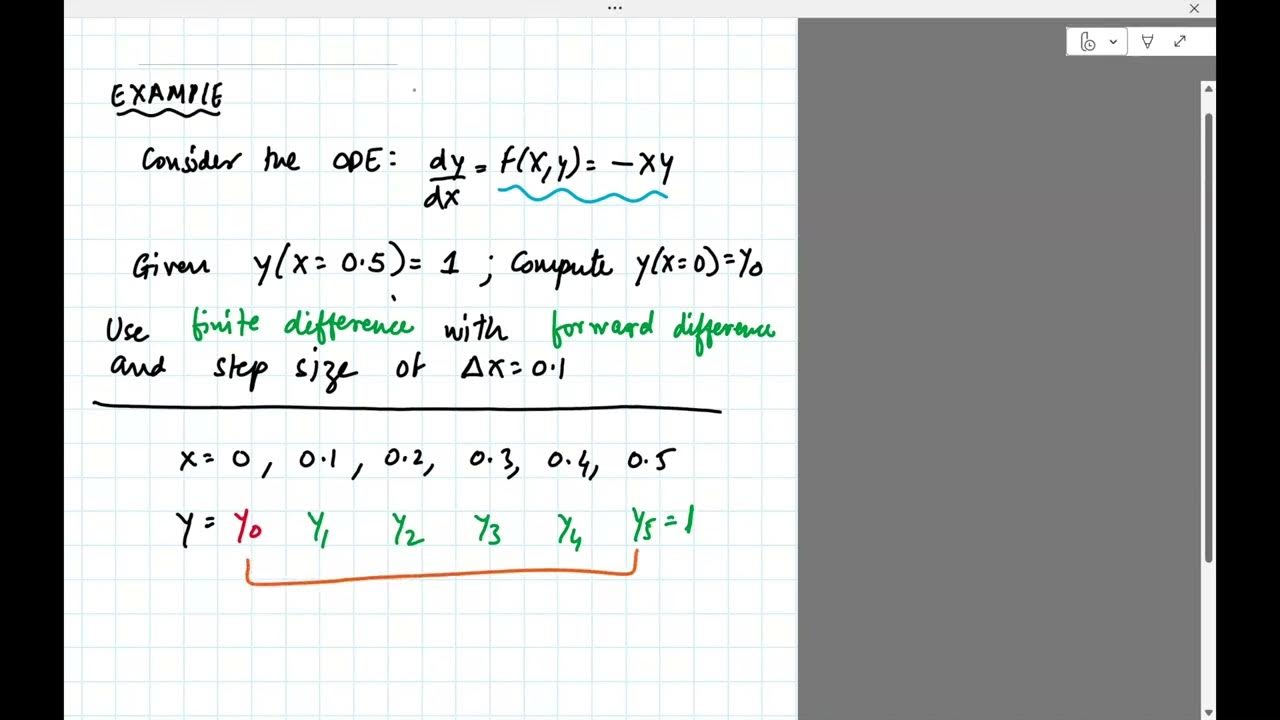 EXAMPLE
Consider the ODE: dy/dx = f(x,y) = -xy
Given y(x=0.5)=1 ; Compute y(x=0)=y₀
Use finite difference with forward difference
and step size of Δx=0.1
x= 0, 0.1, 0.2, 0.3, 0.4, 0.5
y= y₀ y₁ y₂ y₃ y₄ y₅=1